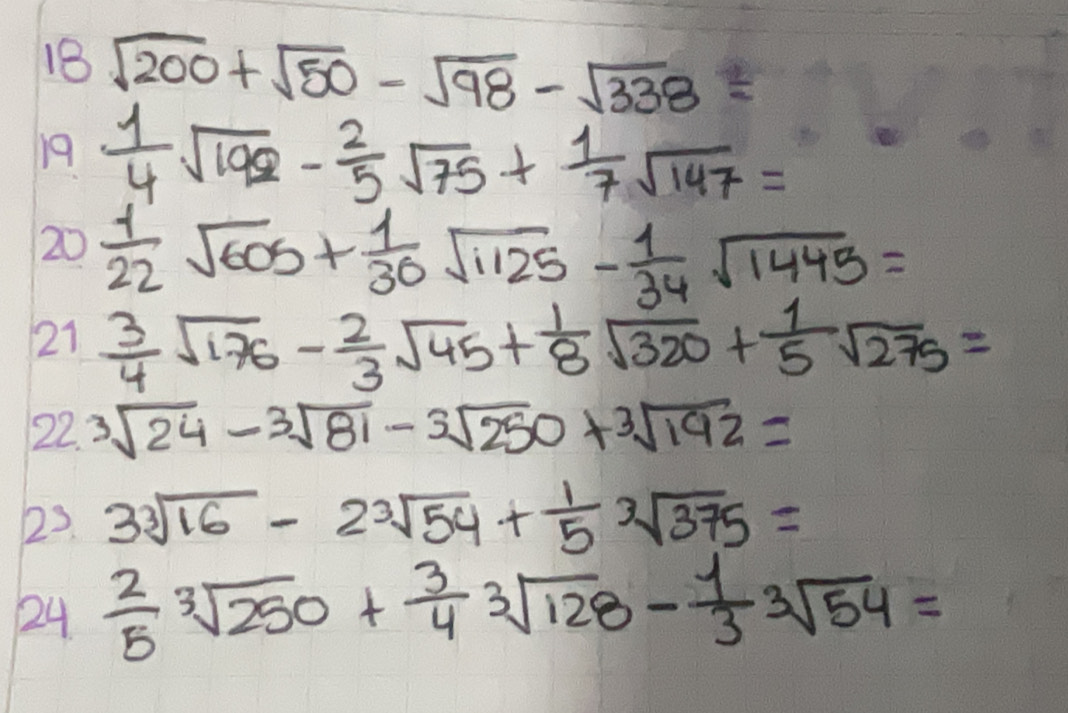 18 √200 + √50 - √98 - √338 =
19 1/4 √192 - 2/5 √75 + 1/7 √147 =
20 1/22 √605 + 1/30 √1125 - 1/34 √1445 =
21 3/4 √176 - 2/3 √45 + 1/8 √320 + 1/5 √275 =
22. ³√24 - ³√81 - ³√250 + ³√192 =
23. 3³√16 - 2³√54 + 1/5 ³√375 =
24. 2/5 ³√250 + 3/4 ³√128 - 1/3 ³√54 =